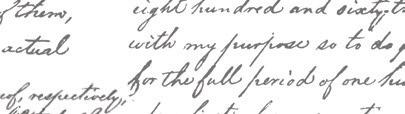 f them,
eight hundred and sixty-t
actual
with my purpose so to do p
for the full period of one hu
eof, respectively,